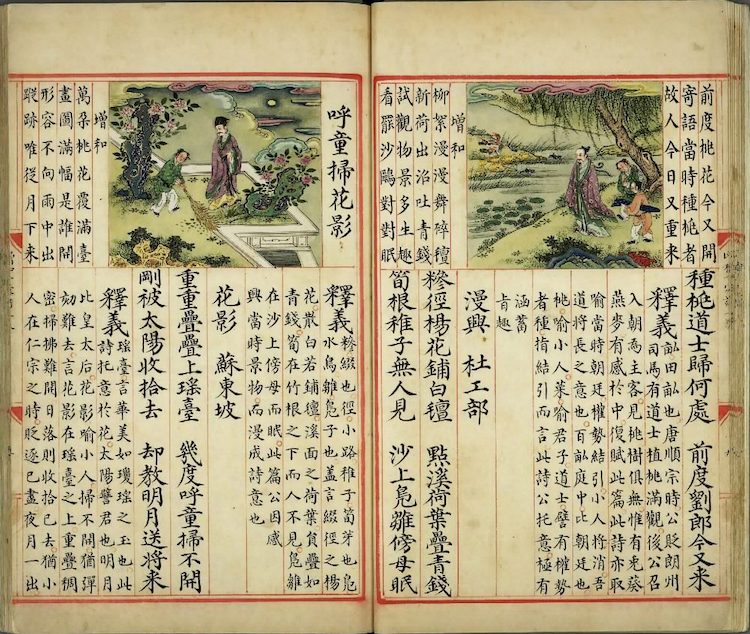 前度桃花今又開
寄語當時種桃者
故人今日又重来
增和
柳絮漫漫舞碎氊
新荷出沼吐青錢
試觀物景多生趣
看罷沙鷗對對眠
種桃道士歸何處　前度劉郎今又来
釋義　畝田畝也唐順宗時公貶朗州
司馬有道士植桃滿觀後公召
入朝為主客見桃樹俱無惟有兎葵
燕麥有感於中復賦此篇此詩亦取
喻當時朝廷權勢結引小人将消吾
道将長之意也百畝庭中比朝廷也
桃喻小人菜喻君子道士譬有權勢
者種指結引而言此詩公托意極有
涵蓄
旨趣
漫興　杜工部
糝徑楊花鋪白氊　點溪荷葉疊青錢
筍根稚子無人見　沙上鳬雛傍母眠
呼童掃花影
增和
萬朵桃花覆滿臺
畫圖滿幅是誰開
形容不向雨中出
蹤跡唯従月下来
釋義　糝綴也徑小路稚子筍芽也鳬
水鳥雛鳬子也盖言綴徑之楊
花散白若鋪氊溪面之荷葉貟疊如
青錢筍在竹根之下而人不見鳬雛
在沙上傍母而眠此篇公因感
興當時景物而漫成詩意也
花影　蘇東坡
重重疊疊上瑶臺　幾度呼童掃不開
剛被太陽收拾去　却教明月送将来
釋義　瑶臺言華美如瓊瑶之玉也此
詩托意於花太陽譬君也明月
比皇太后花影喻小人掃不開猶彈
劾難去言花影在瑶臺之上重疊稠
密掃拂難開日落則收拾已去猶小
人在仁宗之時貶逐已盡夜月一出